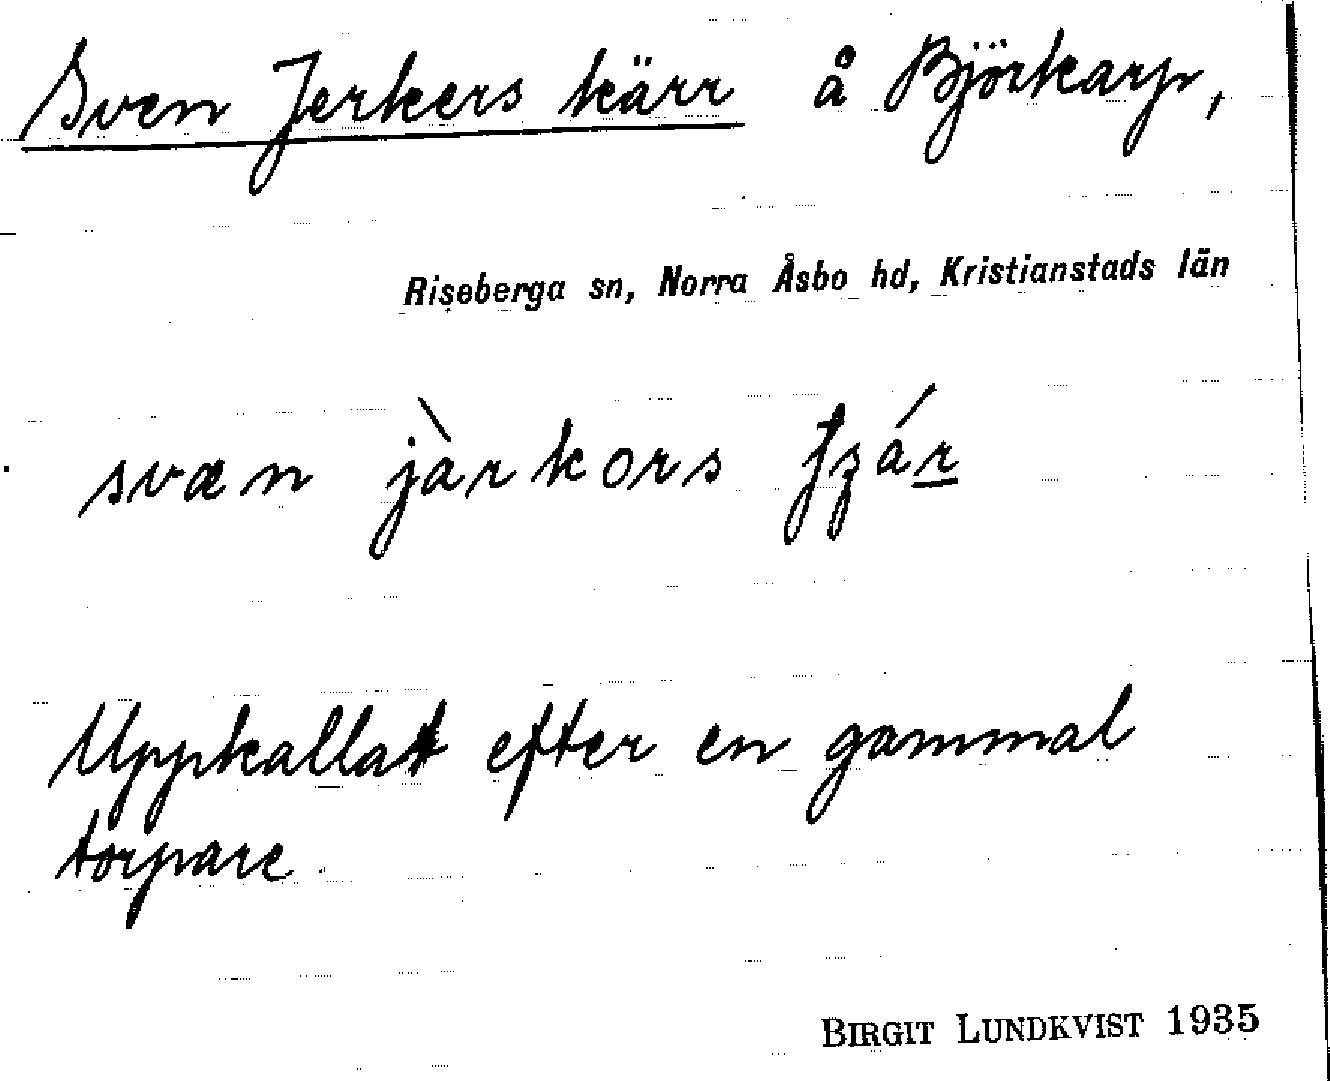 Sven Jerkers kärr å Björkarp,
Riseberga sn, Norra Åsbo hd, Kristianstads län
svæn jàrkors ʃʒár
Uppkallat efter en gammal
torpare.
BIRGIT LUNDKVIST 1935